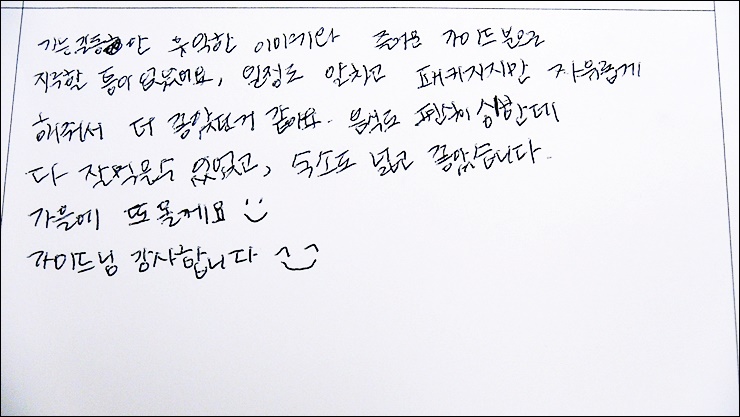 가는 길동안 유익한 이야기와 즐거운 가이드 분으로
지루할 틈이 없었어요, 일정도 알차고 패키지지만 자유롭게
해줘서 더 좋았던거 같아요. 음식도 편식이 심한데
다 잘먹을수 있었고, 숙소도 넓고 좋았습니다.
가을에 또 올게요
가이드님 감사합니다